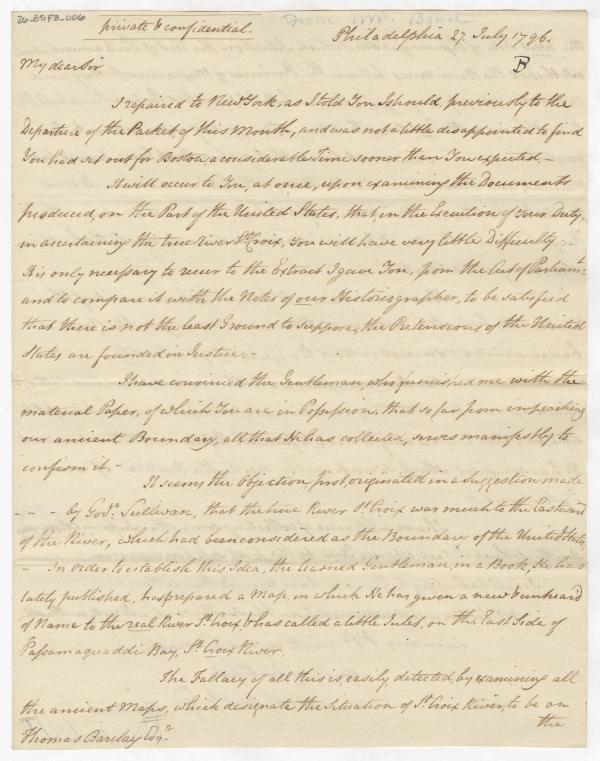 26-BSFB-006
From Mr. Bond
private & confidential.
Philadelphia 27 July 1796.
B
My dear Sir
I repaired to New York, as I told You I should, previously to the
Departure of the Packet of this Month, and was not a little disappointed to find
You had set out for Boston, a considerable Time sooner than You expected.–
It will occur to You, at once, upon examining the Documents
produced, on the Part of the United States, that, in the Execution of Your Duty
in ascertaining the true river St. Croix, You will have very little Difficulty:
It is only necessary to recur to the Extract I gave You, from the Act of Parliamt.
and to compare it with the Notes of our Historiographer, to be satisfied
that there is not the least Ground to suppose, the Pretensions of the United
States are founded in Justice.–
I have convinced the Gentleman who furnished me with the
material Paper, of which You are in Possession, that so far from impeaching
our ancient Boundary, all that He has collected, serves manifestly to
confirm it.–
It seems, the Objection, first, originated in a Suggestion made
– – – by Govr. Sullivan, that the true River St. Croix was much to the Eastward
of the River, which had been considered as the Boundary of the United States,
– In order to establish this Idea, the learned Gentleman, in a Book, He has
lately published, has prepared a Map, in which He has given a new & unheard
of Name to the real River St. Croix & has called a little Inlet, on the East Side of
Passamaquaddi Bay, St. Croix River.
The Fallacy of all this is easily detected by examining all
the ancient Maps, which designate the Situation of St. Croix River, to be on
the
Thomas Barclay Esqr.